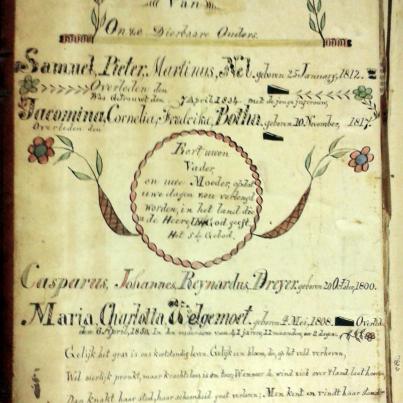 Van
Onze Dierbaare Ouders.
Samuel, Pieter, Martinus, Nel. geboren 25 January, 1812.
Overleden den
Was Getrouwt den 7 April 1834. met de jonge juffrouw,
Jacomina, Cornelia, Fredrika, Botha. geboren 10 November, 1817.
Overleden den
Eert uwen
Vader,
en uwe Moeder, opdat
uwe dagen
worden, in het land die
u de Heere, God geeft.
Het 5de Gebod.
Casparus, Johannes, Reynardus, Dreyer. geboren 20 October, 1800.
Maria Charlotta geboren 4 Mei, 1808. Overled.
den 6 April, 1850. In den ouderdom van 41 jaren, 11 maanden, en 2 dagen.
Gelijk het gras is ons kortstondig leven. Gelijk een bloem, die, op het veld verheven,
Wel sierlijk pronkt, maar krachtloos is en teer; Wanneer de wind zich over 't land laat hooren,
Dan knakt haar steel, haar schoonheid gaat verloren; Men kent en vindt haar standplaats